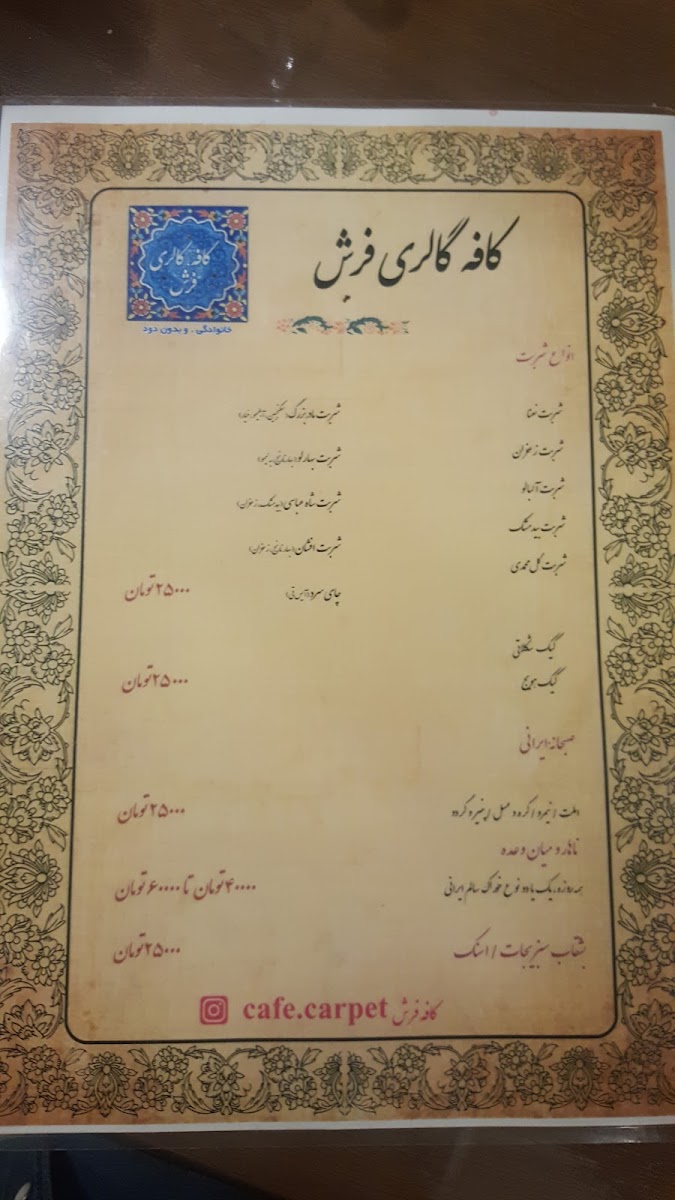 کافه گالری فرش
کافه گالری
فرش
خانوادگی . و بدون دود
انواع شربت
شربت نعنا
شربت زعفران
شربت آلبالو
شربت بیدمشک
شربت گل محمدی
شربت مادربزرگ (سکنجبین، آبلیمو، خیار)
شربت بهار لو (بهار نارنج، به لیمو)
شربت شاه عباسی (بیدمشک، زعفران)
شربت افشان (بهار نارنج، زعفران)
چای سرد (آیس تی)
۲۵۰۰۰ تومان
کیک شکلاتی
کیک هویج
۲۵۰۰۰ تومان
صبحانه ایرانی
املت / نیمرو / کره و عسل / پنیر و گردو
۲۵۰۰۰ تومان
ناهار و میان وعده
همه روزه، یک یا دو نوع خوراک سالم ایرانی
۴۰۰۰۰ تومان تا ۶۰۰۰۰ تومان
بشقاب سبزیجات / اسنک
۲۵۰۰۰ تومان
cafe.carpet کافه فرش